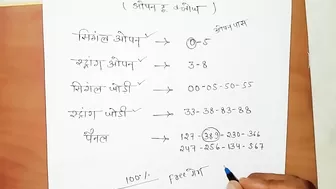 ( ओपन टू क्लोज )
ओपन पास
सिंगल ओपन → 0-5
स्ट्रांग ओपन → 3-8
सिंगल जोडी → 00-05-50-55
स्ट्रांग जोडी → 33-38-83-88
पैनल → 127-389-230-366
247-256-134-567
100%